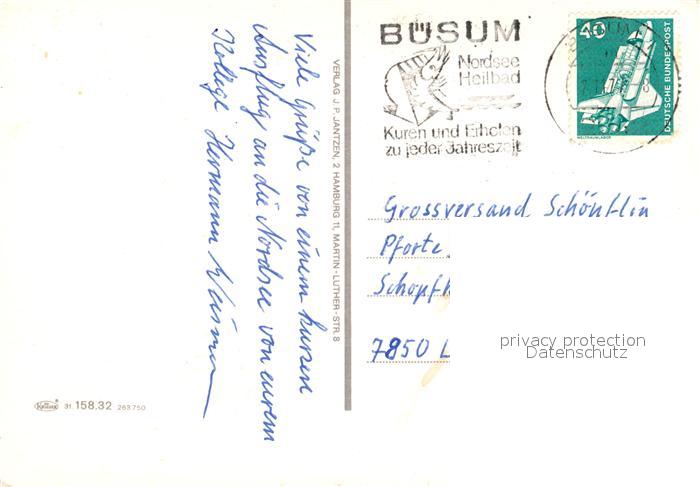 Viele Grüße von einem kurzen
Ausflug an die Nordsee von eurem
Kollege Hermann
VERLAG J. P. JANTZEN, 2 HAMBURG 11, MARTIN-LUTHER-STR. 8
31 158.32 263 750
BÜSUM
Nordsee
Heilbad
Kuren und Erholen
zu jeder Jahreszeit
40
DEUTSCHE BUNDESPOST
WELTRAUMLABOR
Grossversand Schöntlin
Pforte
Schopfh
7850 L
privacy protection
Datenschutz